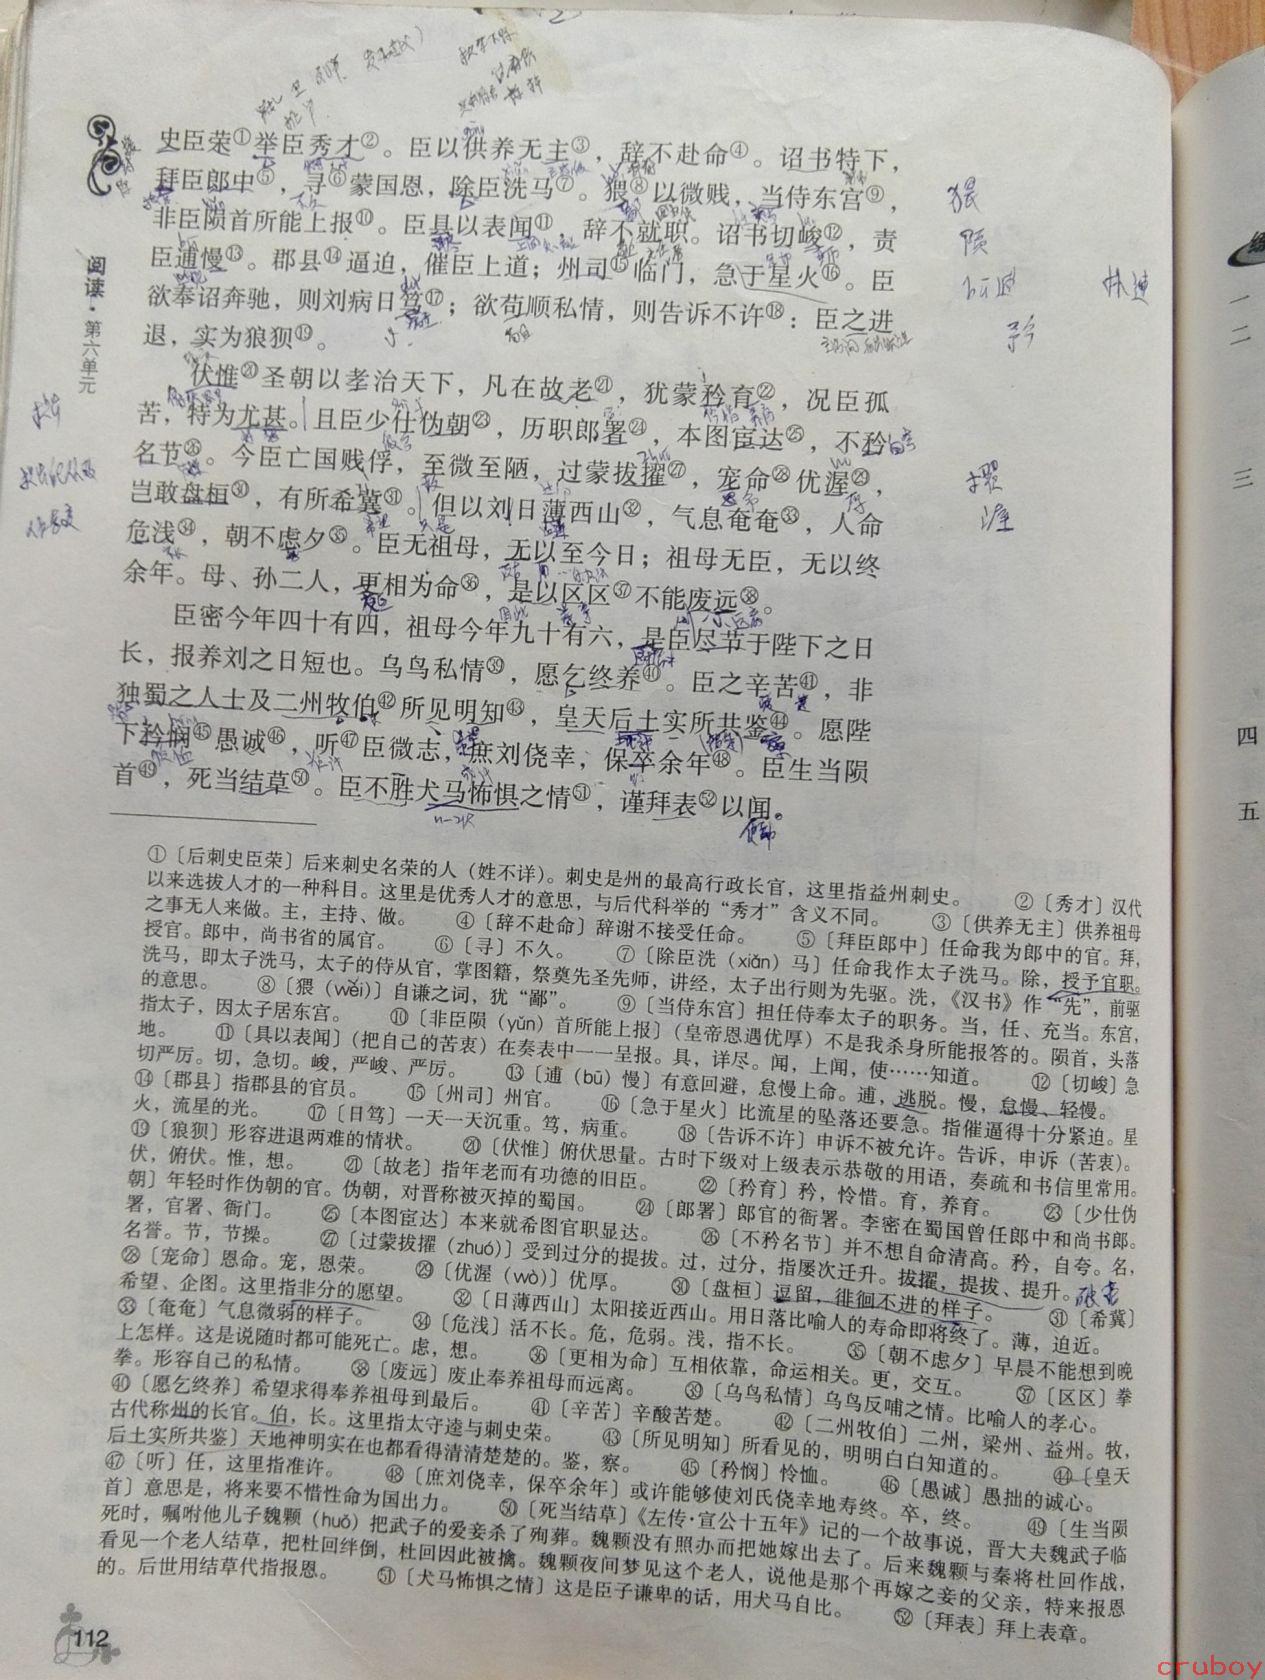 史臣荣①举臣秀才②。臣以供养无主③，辞不赴命④。诏书特下，
拜臣郎中⑤，寻⑥蒙国恩，除臣洗马⑦。猥⑧以微贱，当侍东宫⑨，
非臣陨首所能上报⑩。臣具以表闻⑪，辞不就职。诏书切峻⑫，责
臣逋慢⑬。郡县⑭逼迫，催臣上道；州司⑮临门，急于星火⑯。臣
欲奉诏奔驰，则刘病日笃⑰；欲苟顺私情，则告诉不许⑱：臣之进
退，实为狼狈⑲。
伏惟⑳圣朝以孝治天下，凡在故老㉑，犹蒙矜育㉒，况臣孤
苦，特为尤甚。且臣少仕伪朝㉓，历职郎署㉔，本图宦达㉕，不矜
名节㉖。今臣亡国贱俘，至微至陋，过蒙拔擢㉗，宠命㉘优渥㉙，
岂敢盘桓㉚，有所希冀㉛。但以刘日薄西山㉜，气息奄奄㉝，人命
危浅㉞，朝不虑夕㉟。臣无祖母，无以至今日；祖母无臣，无以终
余年。母、孙二人，更相为命㊱，是以区区㊲不能废远㊳。
臣密今年四十有四，祖母今年九十有六，是臣尽节于陛下之日
长，报养刘之日短也。乌鸟私情㊴，愿乞终养㊵。臣之辛苦㊶，非
独蜀之人士及二州牧伯㊷所见明知㊸，皇天后土实所共鉴㊹。愿陛
下矜悯㊺愚诚㊻，听㊼臣微志，庶刘侥幸，保卒余年㊽。臣生当陨
首㊾，死当结草㊿。臣不胜犬马怖惧之情51，谨拜表52以闻。
阅读·第六单元
猥
陨
逋
矜
擢
渥
①〔后刺史臣荣〕后来刺史名荣的人（姓不详）。刺史是州的最高行政长官，这里指益州刺史。 ②〔秀才〕汉代
以来选拔人才的一种科目。这里是优秀人才的意思，与后代科举的“秀才”含义不同。 ③〔供养无主〕供养祖母
之事无人来做。主，主持、做。 ④〔辞不赴命〕辞谢不接受任命。 ⑤〔拜臣郎中〕任命我为郎中的官。拜，
授官。郎中，尚书省的属官。 ⑥〔寻〕不久。 ⑦〔除臣洗（xiǎn）马〕任命我作太子洗马。除，授予官职。
洗马，即太子洗马，太子的侍从官，掌图籍，祭奠先圣先师，讲经，太子出行则为先驱。洗，《汉书》作“先”，前驱
的意思。 ⑧〔猥（wěi）〕自谦之词，犹“鄙”。 ⑨〔当侍东宫〕担任侍奉太子的职务。当，任、充当。东宫，
指太子，因太子居东宫。 ⑩〔非臣陨（yǔn）首所能上报〕（皇帝恩遇优厚）不是我杀身所能报答的。陨首，头落
地。 ⑪〔具以表闻〕（把自己的苦衷）在奏表中一一呈报。具，详尽。闻，上闻，使……知道。 ⑫〔切峻〕急
切严厉。切，急切。峻，严峻、严厉。 ⑬〔逋（bū）慢〕有意回避，怠慢上命。逋，逃脱。慢，怠慢、轻慢。
⑭〔郡县〕指郡县的官员。 ⑮〔州司〕州官。 ⑯〔急于星火〕比流星的坠落还要急。指催逼得十分紧迫。星
火，流星的光。 ⑰〔日笃〕一天一天沉重。笃，病重。 ⑱〔告诉不许〕申诉不被允许。告诉，申诉（苦衷）。
⑲〔狼狈〕形容进退两难的情状。 ⑳〔伏惟〕俯伏思量。古时下级对上级表示恭敬的用语，奏疏和书信里常用。
伏，俯伏。惟，想。 ㉑〔故老〕指年老而有功德的旧臣。 ㉒〔矜育〕矜，怜惜。育，养育。 ㉓〔少仕伪
朝〕年轻时作伪朝的官。伪朝，对晋称被灭掉的蜀国。 ㉔〔郎署〕郎官的衙署。李密在蜀国曾任郎中和尚书郎。
署，官署、衙门。 ㉕〔本图宦达〕本来就希图官职显达。 ㉖〔不矜名节〕并不想自命清高。矜，自夸。名，
名誉。节，节操。 ㉗〔过蒙拔擢（zhuó）〕受到过分的提拔。过，过分，指屡次迁升。拔擢，提拔、提升。
㉘〔宠命〕恩命。宠，恩荣。 ㉙〔优渥（wò）〕优厚。 ㉚〔盘桓〕逗留，徘徊不进的样子。 ㉛〔希冀〕
希望、企图。这里指非分的愿望。 ㉜〔日薄西山〕太阳接近西山。用日落比喻人的寿命即将终了。薄，迫近。
㉝〔奄奄〕气息微弱的样子。 ㉞〔危浅〕活不长。危，危弱。浅，指不长。 ㉟〔朝不虑夕〕早晨不能想到晚
上怎样。这是说随时都可能死亡。虑，想。 ㊱〔更相为命〕互相依靠，命运相关。更，交互。 ㊲〔区区〕拳
拳。形容自己的私情。 ㊳〔废远〕废止奉养祖母而远离。 ㊴〔乌鸟私情〕乌鸟反哺之情。比喻人的孝心。
㊵〔愿乞终养〕希望求得奉养祖母到最后。 ㊶〔辛苦〕辛酸苦楚。 ㊷〔二州牧伯〕二州，梁州、益州。牧，
古代称州的长官。伯，长。这里指太守逵与刺史荣。 ㊸〔所见明知〕所看见的，明明白白知道的。 ㊹〔皇天
后土实所共鉴〕天地神明实在也都看得清清楚楚的。鉴，察。 ㊺〔矜悯〕怜恤。 ㊻〔愚诚〕愚拙的诚心。
㊼〔听〕任，这里指准许。 ㊽〔庶刘侥幸，保卒余年〕或许能够使刘氏侥幸地寿终。卒，终。 ㊾〔生当陨
首〕意思是，将来要不惜性命为国出力。 ㊿〔死当结草〕《左传·宣公十五年》记的一个故事说，晋大夫魏武子临
死时，嘱咐他儿子魏颗（huǒ）把武子的爱妾杀了殉葬。魏颗没有照办而把她嫁出去了。后来魏颗与秦将杜回作战，
看见一个老人结草，把杜回绊倒，杜回因此被擒。魏颗夜间梦见这个老人，说他是那个再嫁之妾的父亲，特来报恩
的。后世用结草代指报恩。 51〔犬马怖惧之情〕这是臣子谦卑的话，用犬马自比。 52〔拜表〕拜上表章。
112
一
二
三
四
五
cruboy